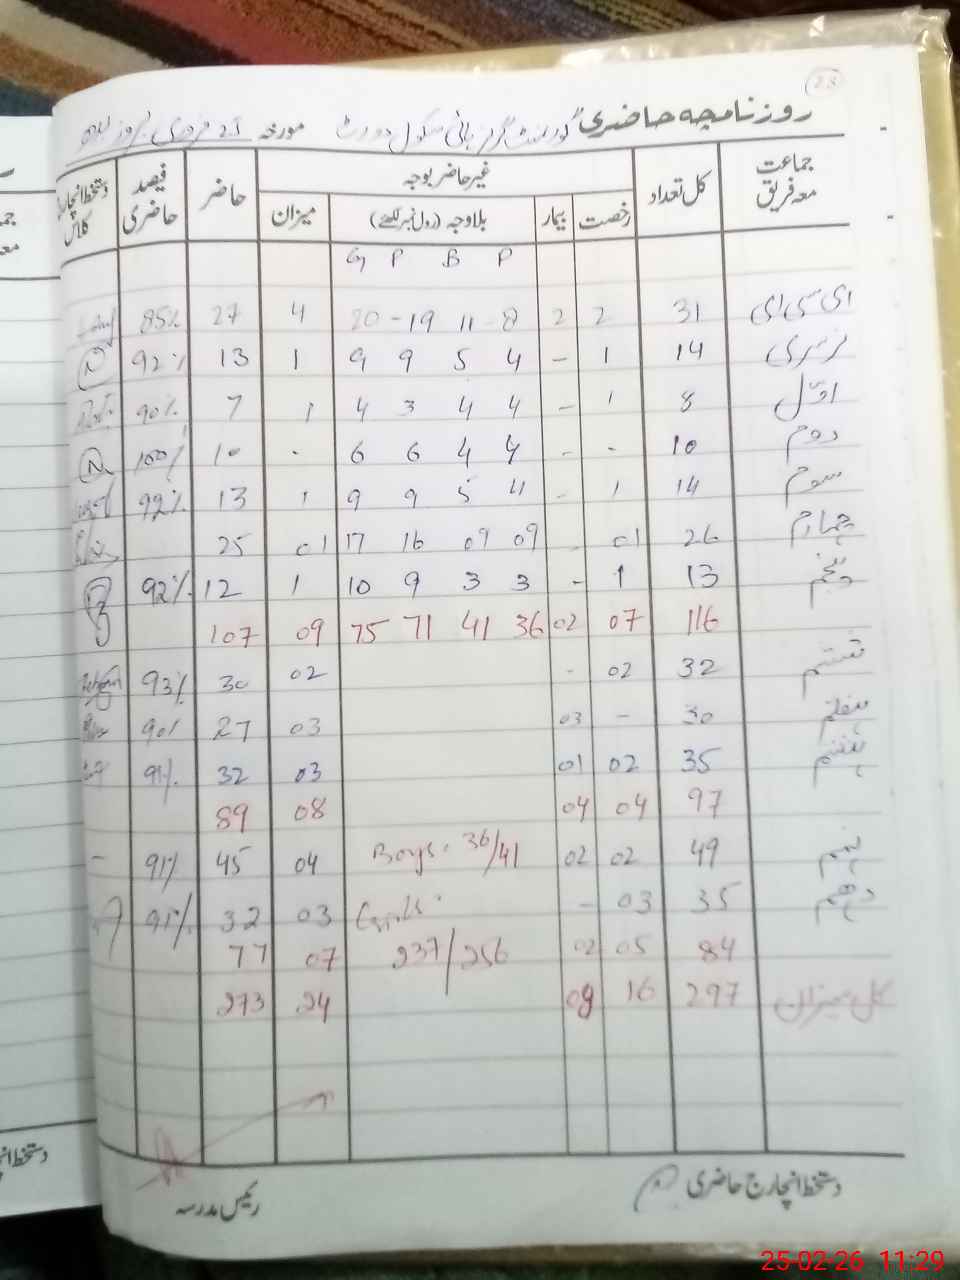 23
روزنامچہ حاضری گورنمنٹ گرلز ہائی سکول مورخہ 25 فروری بروز بدھ
جماعت معہ فریق کل تعداد غیر حاضر بوجہ حاضر فیصد حاضری دستخط انچارج کلاس
رخصت بیمار بلاوجہ (رول نمبر لکھئے) میزان
G P B P
ای سی ای 31 2 2 20 - 19 11 - 8 4 27 85%
نرسری 14 1 - 9 9 5 4 1 13 92% N
اول 8 1 - 4 3 4 4 1 7 90%
دوم 10 - - 6 6 4 4 - 10 100% N
سوم 14 1 - 9 9 5 4 1 13 92%
چہارم 26 01 - 17 16 09 09 01 25
پنجم 13 1 - 10 9 3 3 1 12 92%
116 07 02 75 71 41 36 09 107
ششم 32 02 - 02 30 93%
ہفتم 30 - 03 03 27 90%
ہشتم 35 02 01 03 32 91%
97 04 04 08 89
نہم 49 02 02 Boys. 36/41 04 45 91% -
دہم 35 03 - Girls. 03 32 91%
84 05 02 237/256 07 77
کل میزان 297 16 08 24 273
دستخط انچارج حاضری
رئیس مدرسہ
25-02-26 11:29